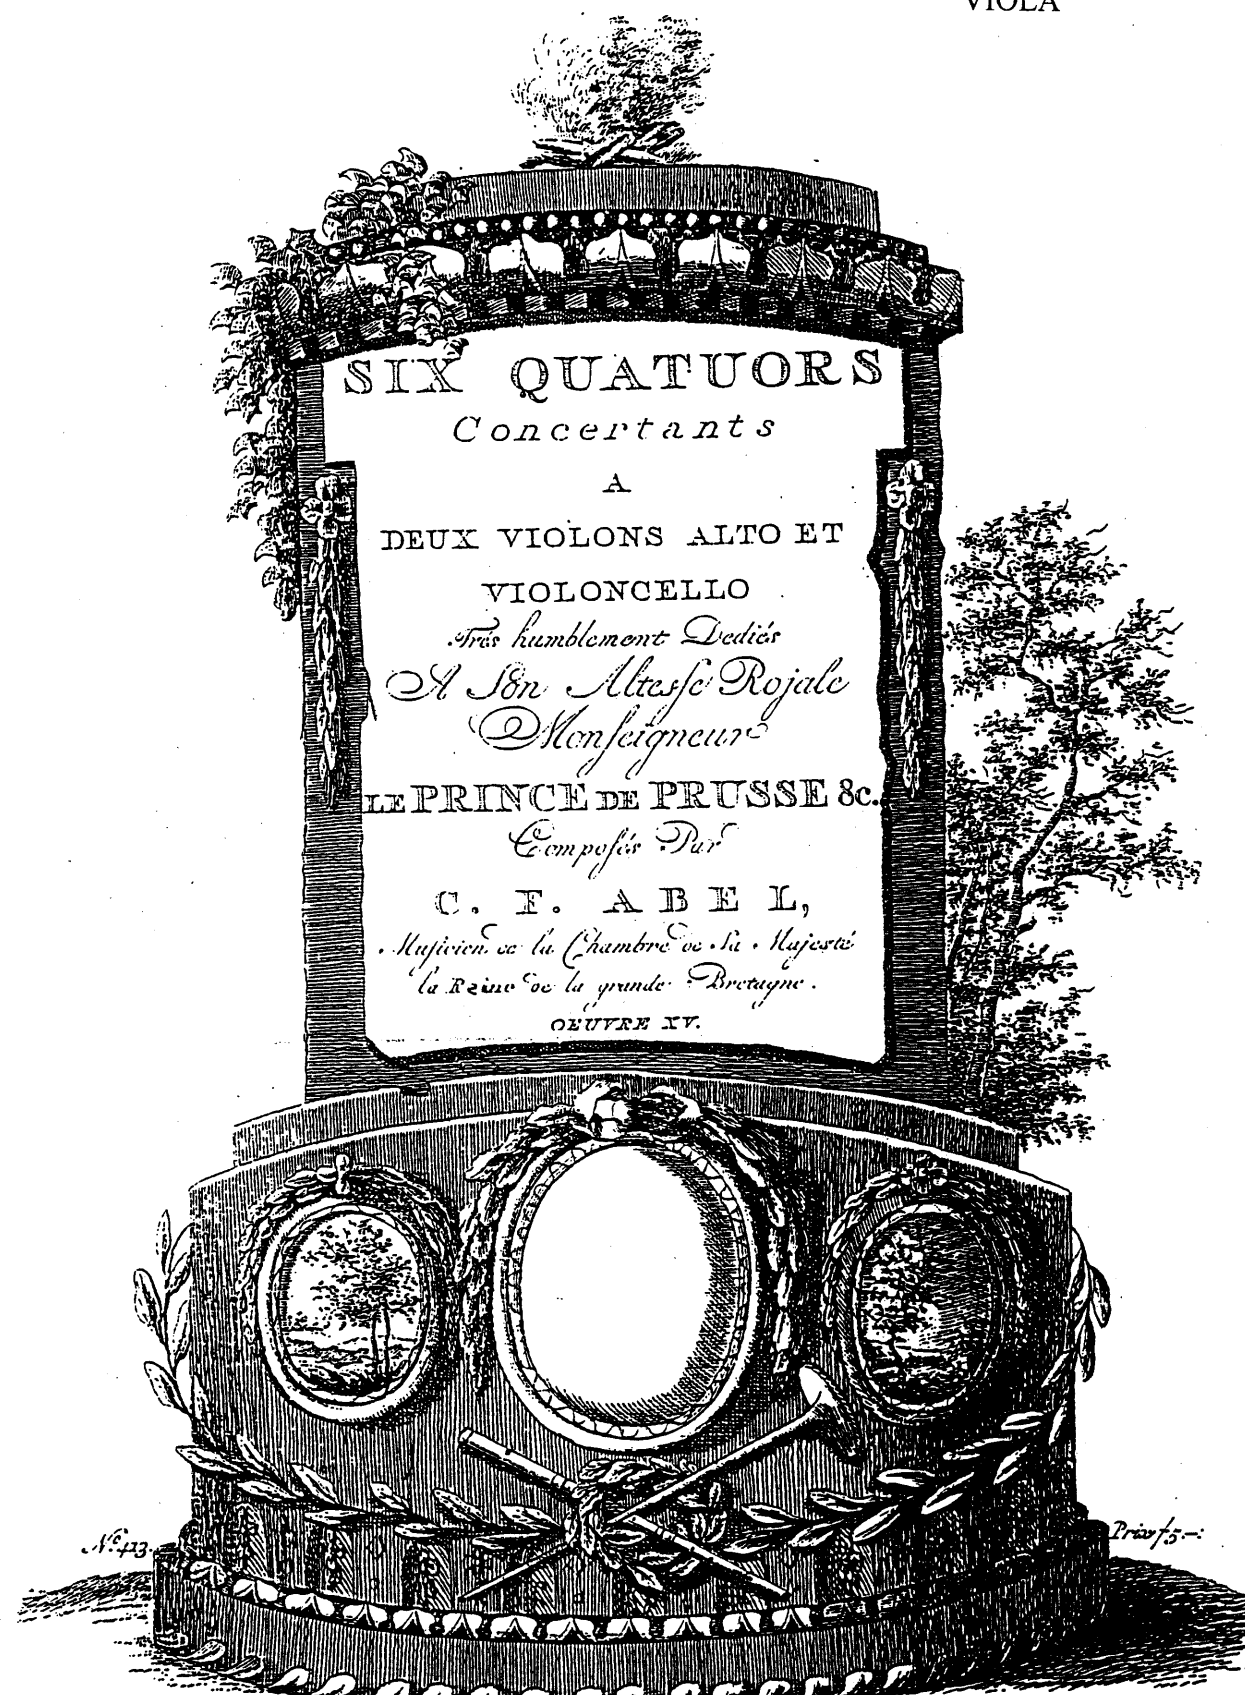 VIOLA
SIX QUATUORS
Concertants
A
DEUX VIOLONS ALTO ET
VIOLONCELLO
Trés humblement Dediés
A Son Altesse Rojale
Monseigneur
LE PRINCE DE PRUSSE &c.
Composés Par
C. F. ABEL,
Musicien de la Chambre de Sa Majesté
la Reine de la grande Bretagne.
OEUVRE XV.
No. 413.
Prix f 5.-: